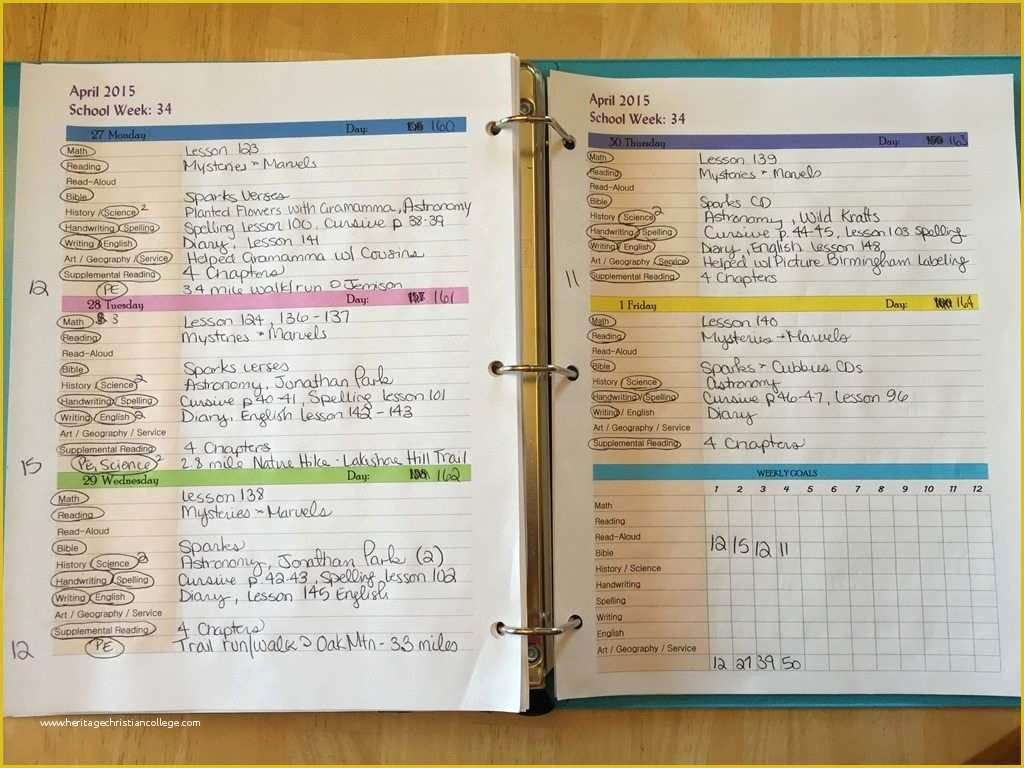 April 2015
School Week: 34
27 Monday Day: 160
Math Lesson 123
Reading Mysteries + Marvels
Read-Aloud
Bible Sparks Verses
History / Science 2 Planted Flowers with Gramamma, Astronomy
Handwriting / Spelling Spelling Lesson 100, Cursive p 38-39
Writing / English Diary, Lesson 141
Art / Geography / Service Helped Gramamma w/ Cousins
Supplemental Reading 4 Chapters
12 PE 3.4 mile walk/run @ Jemison
28 Tuesday Day: 161
Math 3 Lesson 124, 136-137
Reading Mysteries + Marvels
Read-Aloud
Bible Sparks verses
History / Science 2 Astronomy, Jonathan Park
Handwriting / Spelling Cursive p 40-41, Spelling lesson 101
Writing / English 2 Diary, English Lesson 142-143
Art / Geography / Service
Supplemental Reading 4 Chapters
15 PE, Science 2 2.8 mile Native Hike - Lakeshore Hill Trail
29 Wednesday Day: 162
Math Lesson 138
Reading Mysteries + Marvels
Read-Aloud
Bible Sparks
History / Science Astronomy, Jonathan Park (2)
Handwriting / Spelling Cursive p. 42-43, Spelling lesson 102
Writing / English Diary, Lesson 145 English
Art / Geography / Service
Supplemental Reading 4 Chapters
12 PE Trail run/walk @ Oak Mtn - 3.3 miles
www.heritagechristiancollege.com
April 2015
School Week: 34
30 Thursday Day: 163
Math Lesson 139
Reading Mysteries + Marvels
Read-Aloud
Bible Sparks CD
History / Science 2 Astronomy, Wild Krafts
Handwriting / Spelling Cursive p. 44-45, Lesson 103 Spelling
Writing / English Diary, English lesson 148
Art / Geography / Service Helped w/ Picture Birmingham Labeling
11 Supplemental Reading 4 Chapters
1 Friday Day: 164
Math Lesson 140
Reading Mysteries + Marvels
Read-Aloud
Bible Sparks + Cubbies CDs
History / Science Astronomy
Handwriting / Spelling Cursive p 46-47, Lesson 96
Writing / English Diary
Art / Geography / Service
Supplemental Reading 4 Chapters
WEEKLY GOALS
1 2 3 4 5 6 7 8 9 10 11 12
Math
Reading
Read-Aloud
12 15 12 11
Bible
History / Science
Handwriting
Spelling
Writing
English
Art / Geography / Service
12 27 39 50